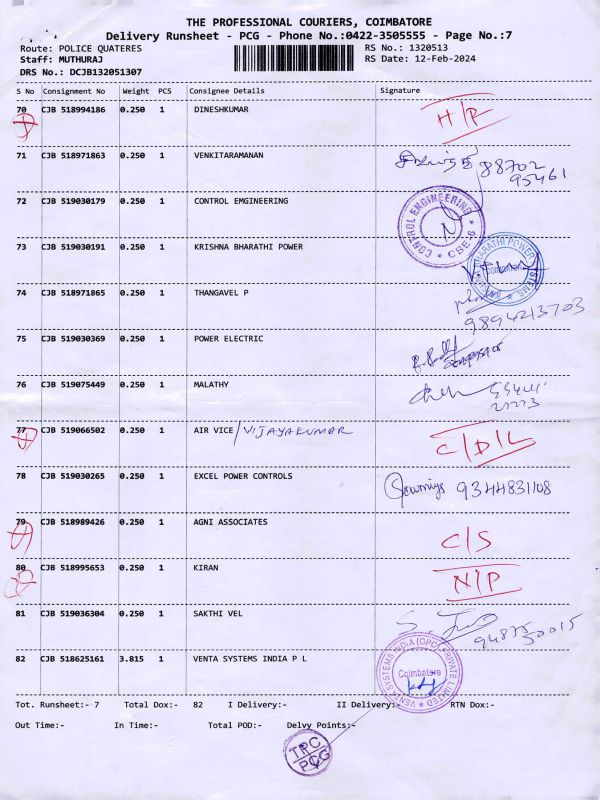 THE PROFESSIONAL COURIERS, COIMBATORE
Delivery Runsheet - PCG - Phone No.:0422-3505555 - Page No.:7
Route: POLICE QUATERES RS No.: 1320513
Staff: MUTHURAJ RS Date: 12-Feb-2024
DRS No.: DCJB132051307
S No Consignment No Weight PCS Consignee Details Signature
70 CJB 518994186 0.250 1 DINESHKUMAR H/R
71 CJB 518971863 0.250 1 VENKITARAMANAN 88702
95461
72 CJB 519030179 0.250 1 CONTROL EMGINEERING
CONTROL ENGINEERING
CBE-6
73 CJB 519030191 0.250 1 KRISHNA BHARATHI POWER
BHARATHI POWER SYSTEMS
Coimbatore
74 CJB 518971865 0.250 1 THANGAVEL P
9894213703
75 CJB 519030369 0.250 1 POWER ELECTRIC
76 CJB 519075449 0.250 1 MALATHY
77 CJB 519066502 0.250 1 AIR VICE /VIJAYAKUMAR C/D/L
78 CJB 519030265 0.250 1 EXCEL POWER CONTROLS 9344831108
79 CJB 518989426 0.250 1 AGNI ASSOCIATES C/S
80 CJB 518995653 0.250 1 KIRAN N/P
81 CJB 519036304 0.250 1 SAKTHI VEL
82 CJB 518625161 3.815 1 VENTA SYSTEMS INDIA P L
VENTA SYSTEMS INDIA (OPC) PRIVATE LIMITED
Coimbatore
Tot. Runsheet:- 7 Total Dox:- 82 I Delivery:- II Delivery:- RTN Dox:-
Out Time:- In Time:- Total POD:- Delvy Points:-
TPC
PCG